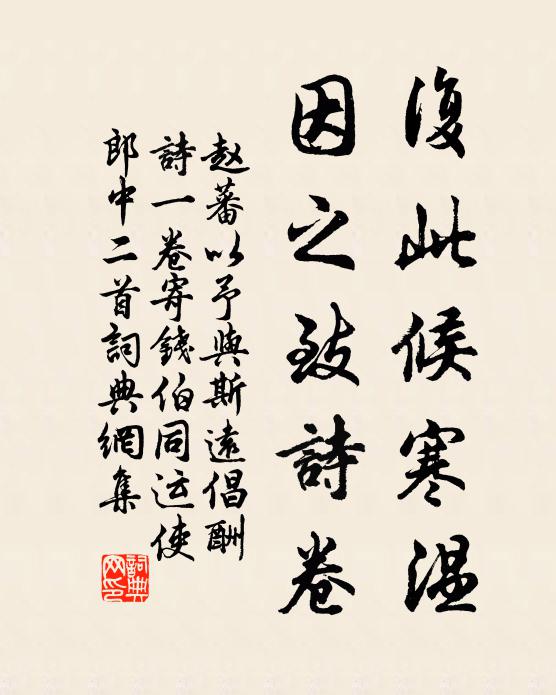 復此候寒温
因之致詩卷
赵蕃以予與斯遠倡酬
詩一卷寄錢伯同运使
郎中二首詞典網集
詞典网印